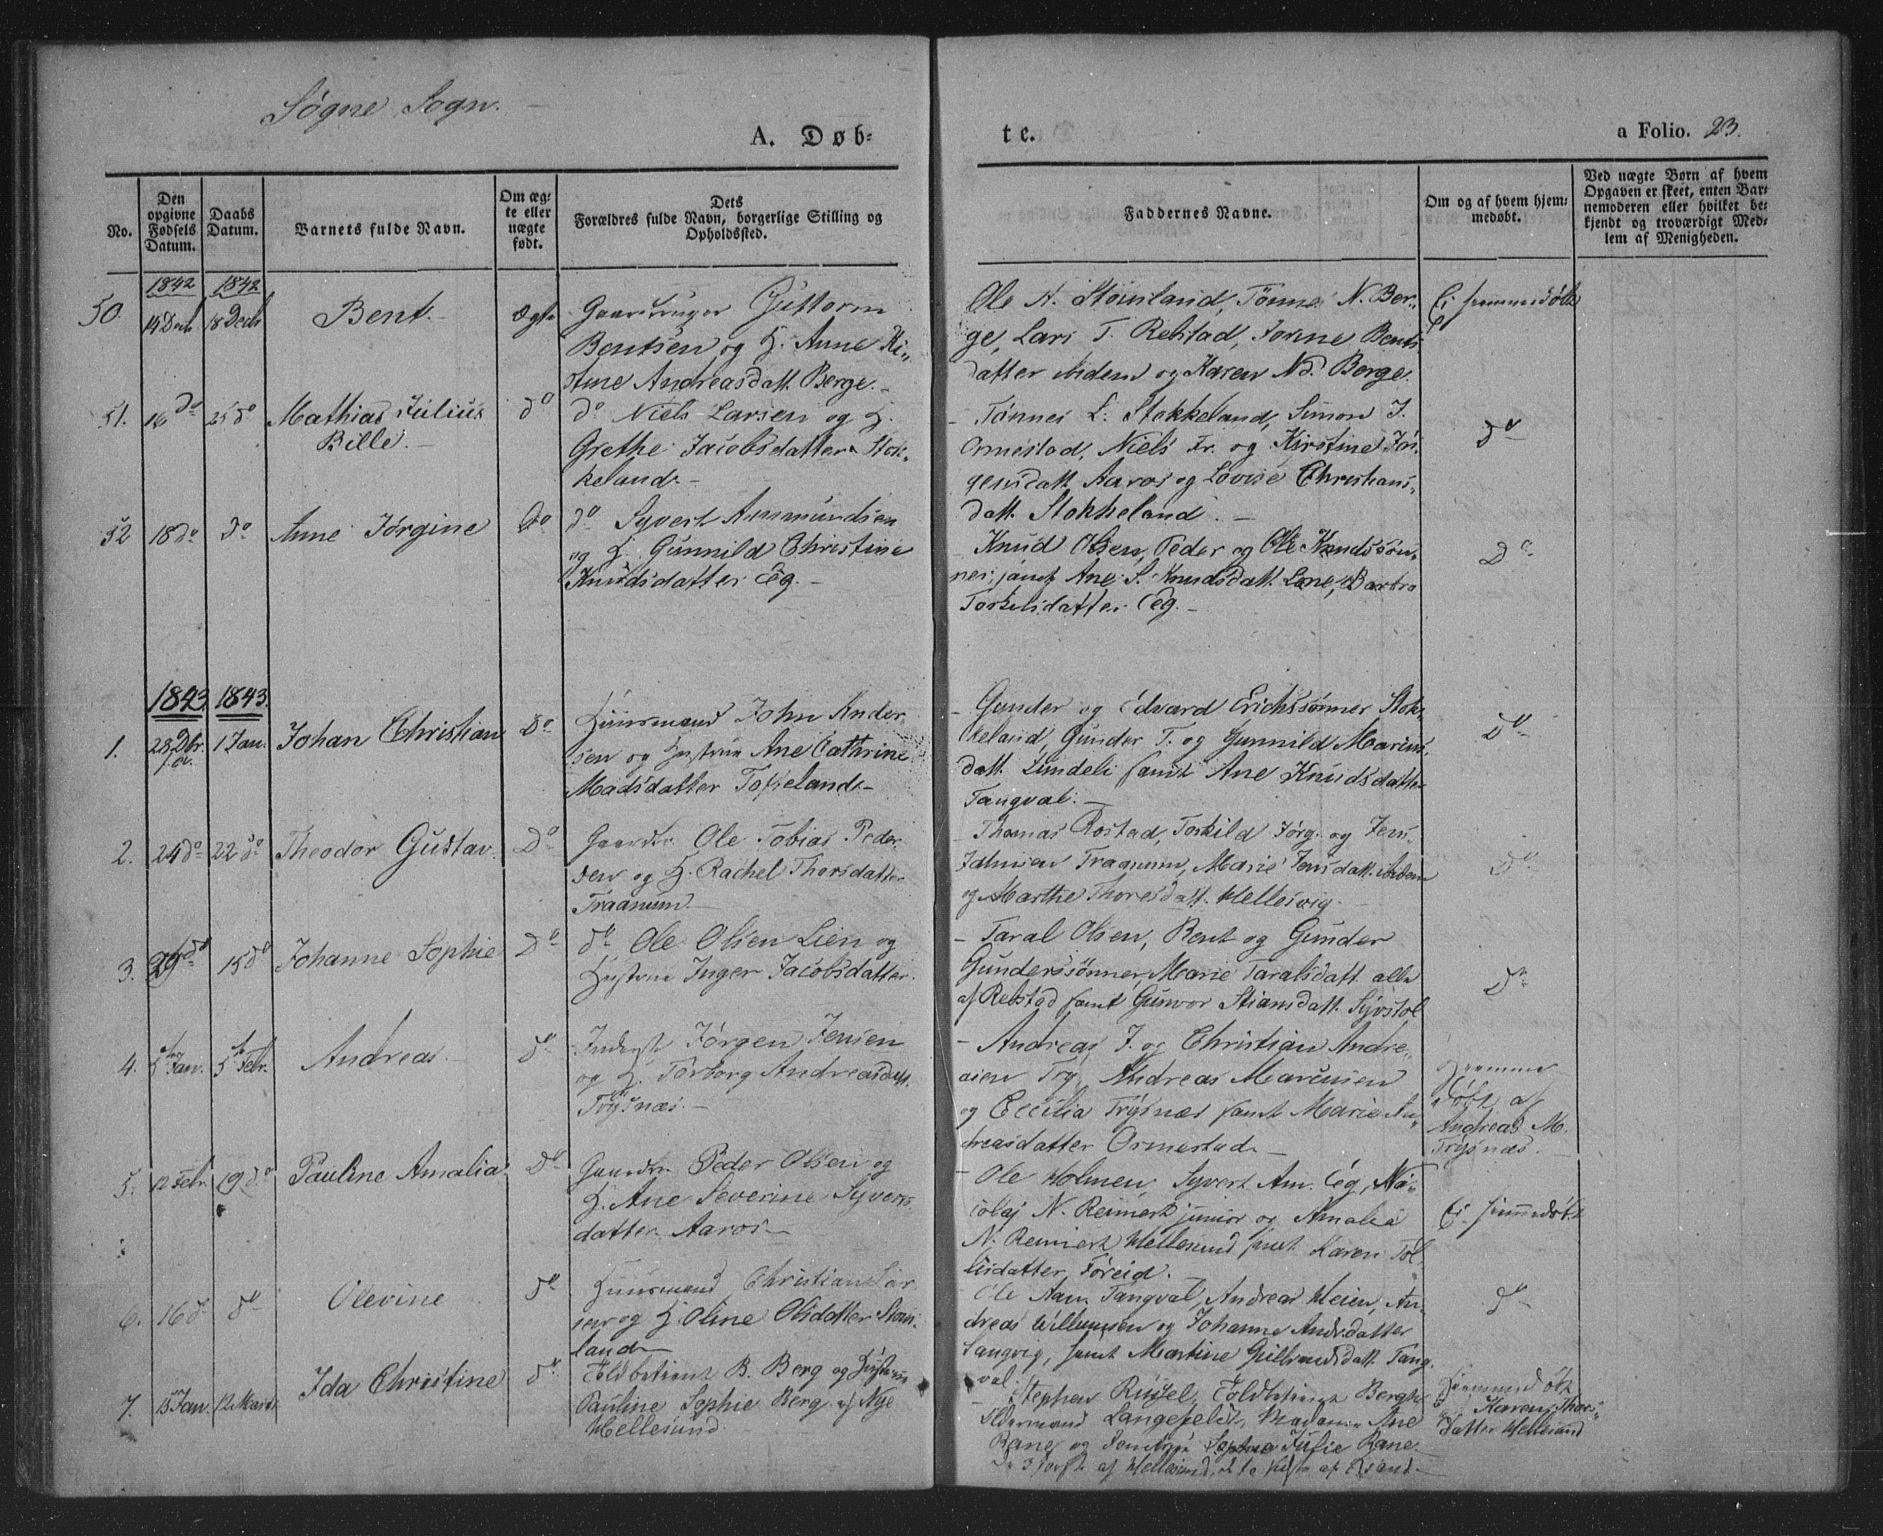 Søgne Sogn.
A. Døb-
te.
a Folio. 23.
No.
Den opgivne Fødsels Datum.
Daabs Datum.
Barnets fulde Navn.
Om ægte eller uægte født.
Dets Forældres fulde Navn, borgerlige Stilling og Opholdssted.
Faddernes Navne.
Om og af hvem hjemmedøbt.
Ved uægte Børn af hvem
Opgaven er skeet, enten Bar-
nemoderen eller hvilket be-
kjendt og troværdigt Med-
lem af Menigheden.
1842 1842
50. 14 Decb 18 Decb Bent. ægte
Gaardbruger Guttorm
Bentsen og H. Anne Ki-
stine Andreasdatt. Berge.
Ole N. Stousland, Tønnes N. Ber-
ge, Lars T. Repstad, Jorine Bents
datter og Karen Nd. Berge.
Ei hjemmedøbt
51. 16 do 25 do Mathias Julius
Bille. do
do Niels Larsen og H.
Grethe Jacobsdatter Stok-
keland.
Tønnes L. Stokkeland, Simon J.
Ormestad, Niels Fr. og Kirstine Jør-
gensdatt. Aaros og Lovise Christians-
datt. Stokkeland.
do
52 18 do do Anne Jørgine do
do Syvert Ammundsen
og H. Gunnild Christine
Knudsdatter Eeg.
Knud Olsen, Peder og Ole Knudssøn-
ner, samt Ane S. Knudsdatt. Lene, Barbro
Torkelsdatter Eeg.
Do
1843 1843
1. 28 Dbr. 1 Jan. Johan Christian Do
Huusmand John Ander
sen og Hustrue Ane Cathrine
Madsdatter Tofteland.
Gunder og Edvard Erichssønner Stok-
keland, Gunder T. og Gunnild Marcus
datt. Lundeli samt Ane Knudsdatter
Tangval.
Do
2. 24 do 22 do Theodor Gustav. Do
Gaardbr. Ole Tobias Peder
sen og H. Rachel Thorsdatter
Traanum.
Thomas Rostad, Torkild Jørg. og Jens
Traanum, Marie Jensdatt.
og Marthe Thoresdatt. Hellesvig.
Do
3. 29 do 15 do Johanne Sophie Do
do Ole Olsen Lien og
Hustrue Inger Jacobsdatter.
Taral Olsen, Bent og Gunder
Gunderssønner, Marie Taralsdatt. alle
af Repstad samt Gunvor Stiansdatt. Syvstol
Do
4. 5 Jan. 5 Febr. Andreas do
Inderst Jørgen Jensen
og H. Torborg Andreasdatt.
Trysnæs.
Andreas J. og Christian Andre-
asen Try, Andreas Marcusen
og Cecilia Trysnæs samt Marie An-
dreasdatter Ormestad.
Hjemme
døbt af
Andreas M.
Trysnæs.
5. 12 Febr 19 do Pauline Amalia Do
Gaardbr. Peder Olsen og
H. Ane Severine Syverts-
datter Aaros.
Ole Holmen, Syvert Am. Eeg, Ni-
colaj N. Reimert junior og Amalia
N. Reimert Hellesund samt Karen Tol
lisdatter Føreid.
Ei hjemmedøbt
6. 16 do do Olevine do
Huusmand Christian Lar
sen og H. Oline Olsdatter Stous-
land.
Ole Aan. Tangval, Andreas Heien, An-
dreas Willumsen og Johanne Andr.datter
Langvig, samt Martine Gulbrandsdatt. Tang
val.
do
7. 15 Jan. 12 Marts Ida Christine do
Toldbetient B. Berg og Hustrue
Pauline Sophie Berg af Nye
Hellesund.
Stephen Toldbetient Bergh
Oldermand Langefeldt, Madame Ane
Rane og Sophie Julie Rane.
De 3 første af Hellesund, de to sidste af
Hjemmedøbt
Karen Thors-
datter Hellesund